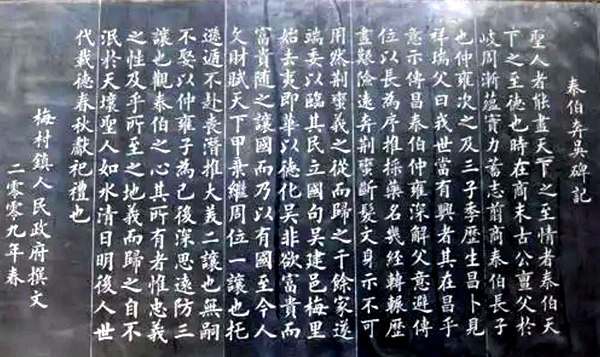 泰伯奔吴碑記
聖人者能盡天下之至情者泰伯天
下之至德也時在商末古公亶父於
岐周漸蕴實力蓄志翦商泰伯長子
也仲雍次之及三子季歷生昌卜見
祥瑞父曰我世當有興者其在昌乎
意示傳昌泰伯仲雍深解父意避傳
位以長為序推採藥名幾经轉輾歷
盡艱險遠奔荆蠻斷髮文身示不可
用然荆蠻義之從而歸之千餘家遂
端委以臨其民立國句吴建邑梅里
始去夷即華以德化吴非欲富貴而
富貴随之讓國而乃以有國至今人
文財賦天下甲棄繼周位一讓也托
遜遁不赴喪潛推大義二讓也無嗣
不娶以仲雍子為己後深思遠防三
讓也觀泰伯之心其所有者惟忠義
之性及乎所至之地義而歸之自不
泯於天壤聖人如水清日明後人世
代載德春秋獻祀禮也
梅村鎮人民政府撰文
二零零九年春